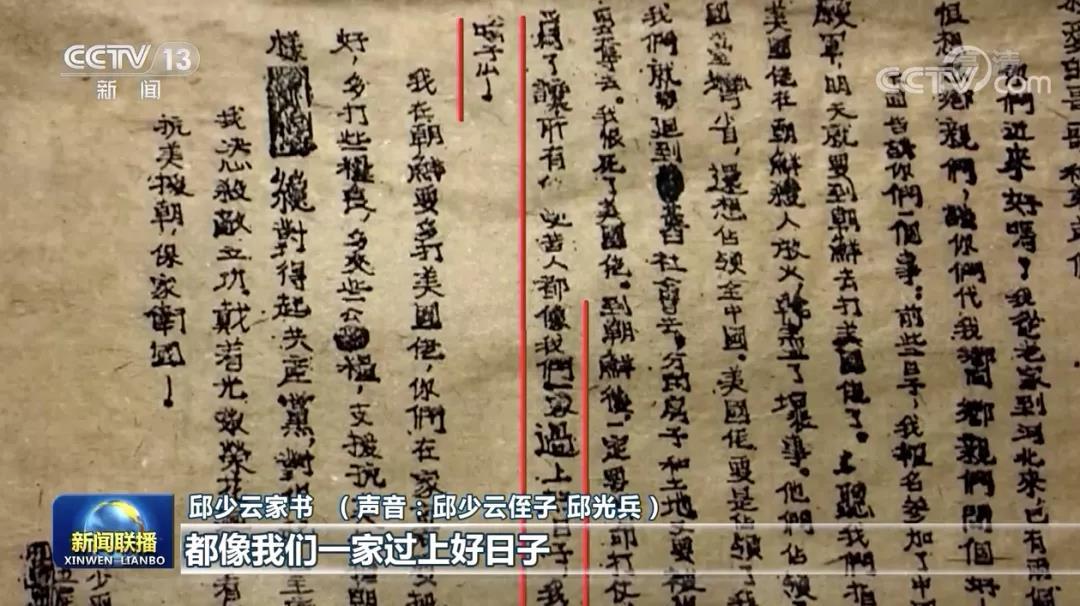 CCTV 13
新闻
高清
CCTV.com
愛的哥哥和弟弟們
們近來好嗎?我從老家到河北來,已有兩個
但想鄉親們,請你們代我向鄉親們問個好
告訴你們一個事:前些日子,我報名參加了中
願軍,明天就要到朝鮮去打美國佬了。聽我們指
美國佬在朝鮮殺人放火,幹盡了壞事。他們佔領
國台灣省,還想佔領全中國。美國佬要是佔領了
我們就 迴到舊社會去,分的房子和土地又要被
奪去。我恨死了美國佬。到朝鮮後,一定要 打仗
爲了讓所有 受苦人都像我們一家過上 日子 我
我在朝鮮要多打美國佬,你們在家
好,多打些糧食,多交些公糧,支援抗
樣 纔對得起共產黨,對
我決心殺敵立功,戴着光 榮花 着
抗美援朝,保家衛國!
少雲
邱少云家书 (声音:邱少云侄子 邱光兵)
新闻联播
XINWEN LIANBO
都像我们一家过上好日子